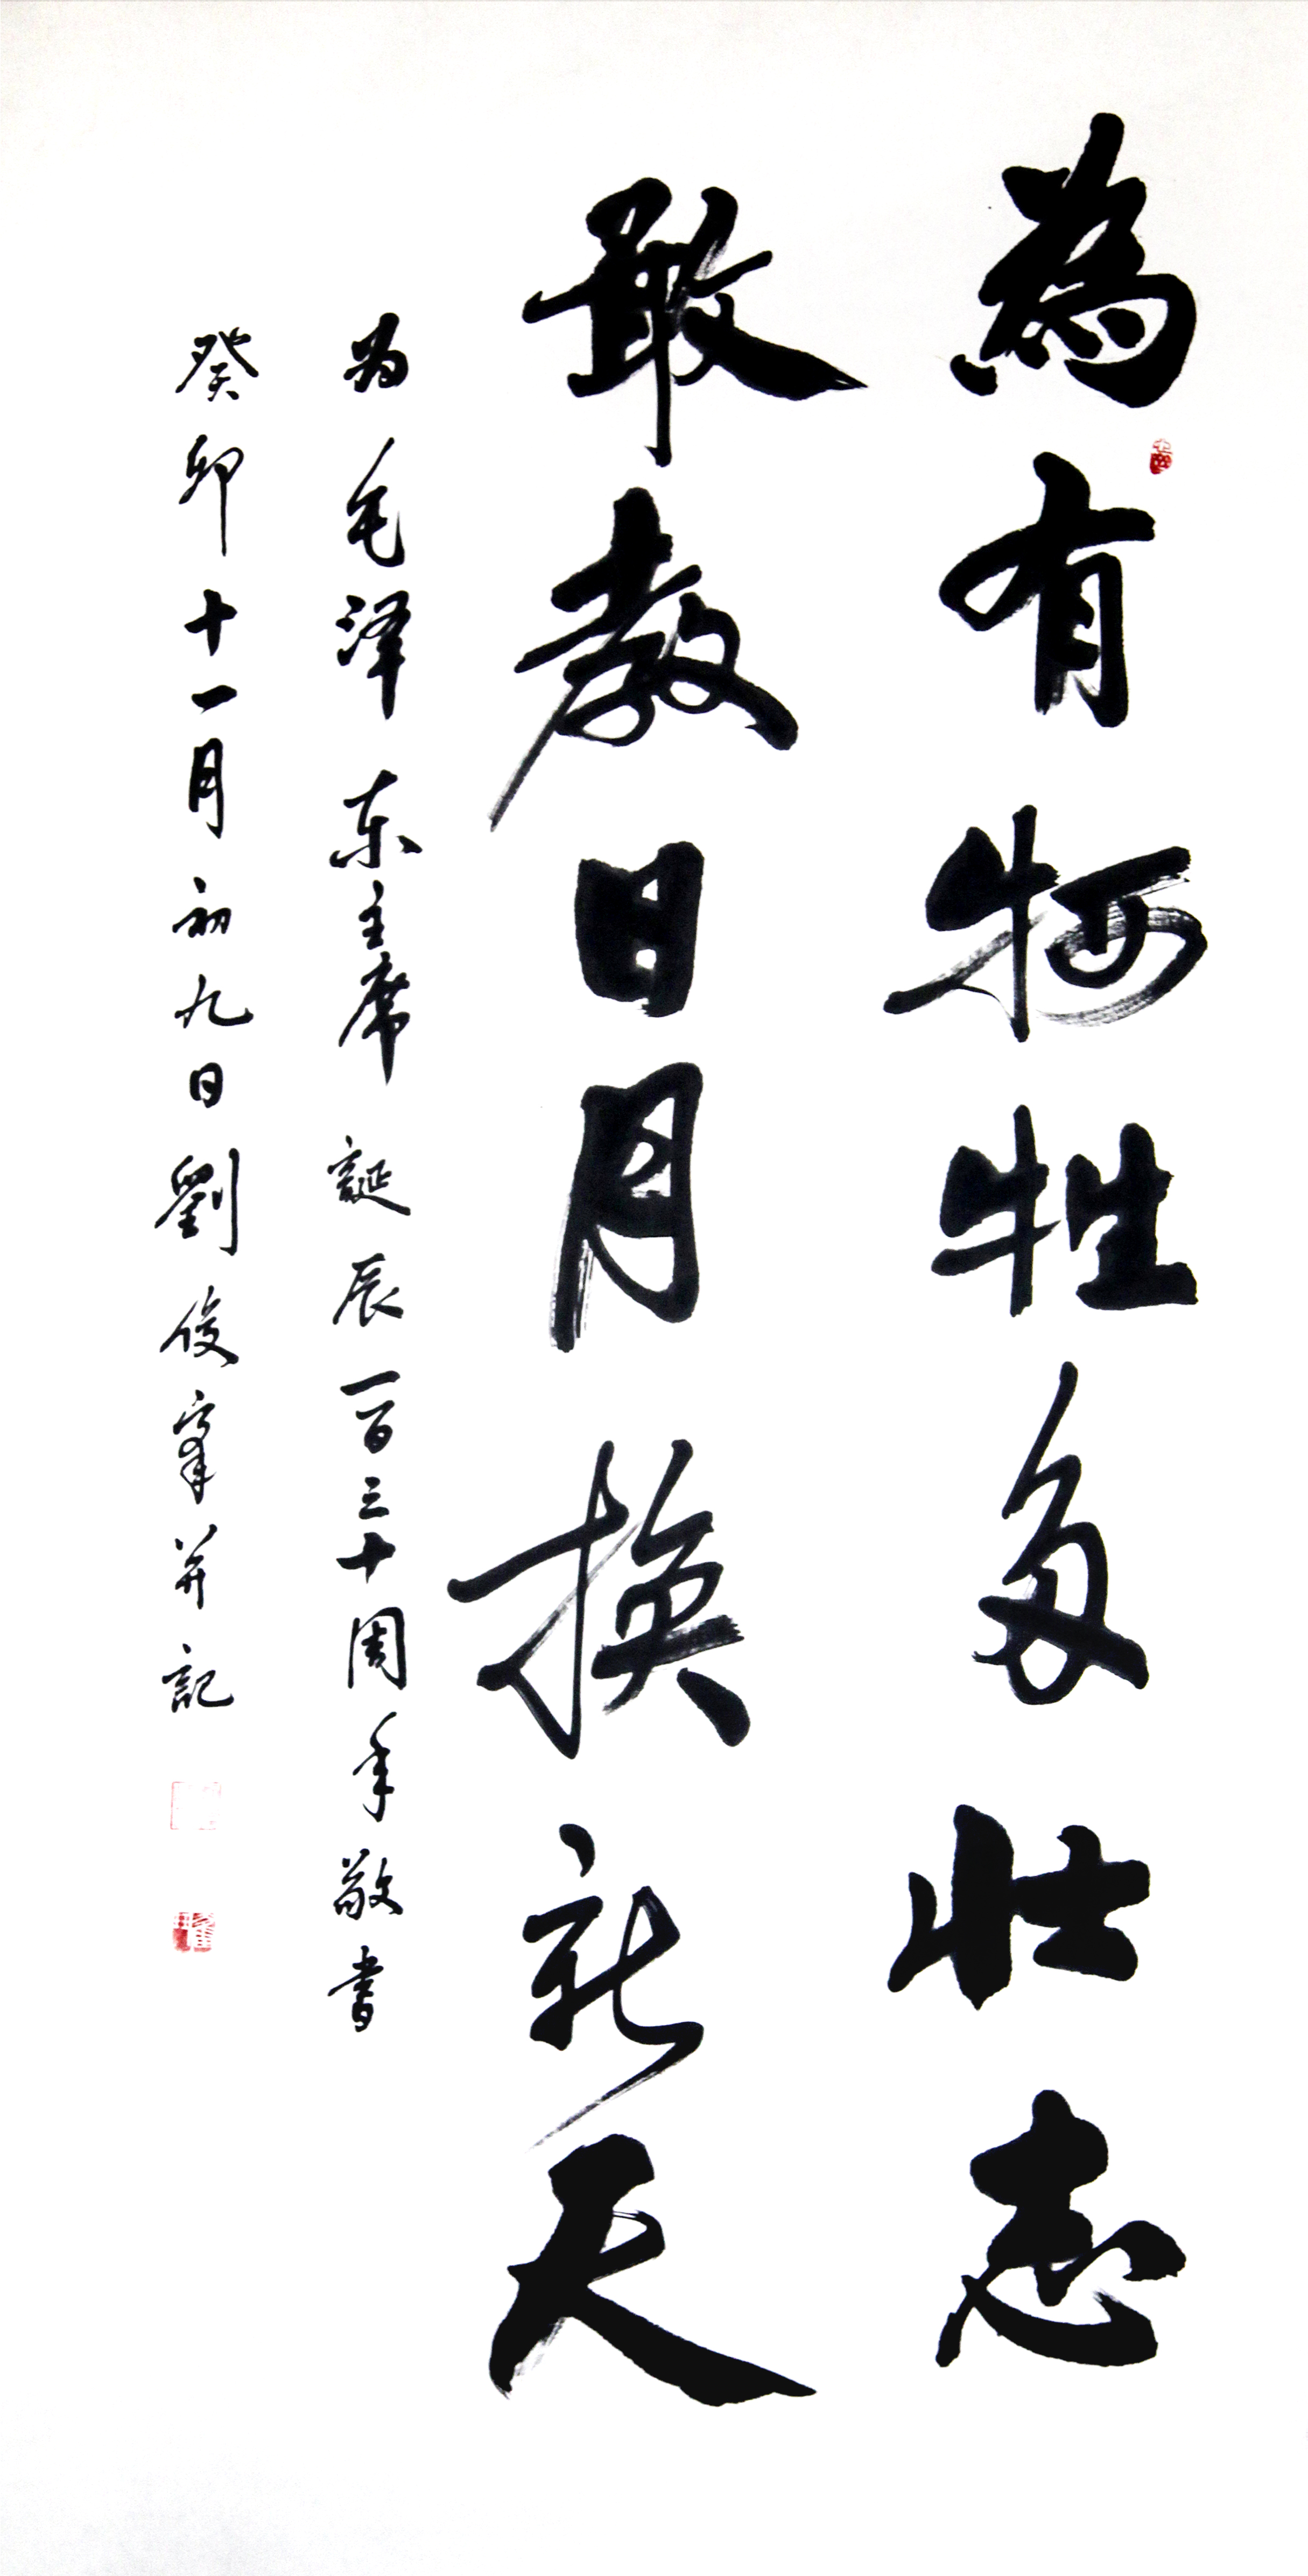 為有牺牲多壮志
敢教日月换新天
为毛泽东主席誕辰一百三十周年敬書
癸卯十一月初九日劉俊并記